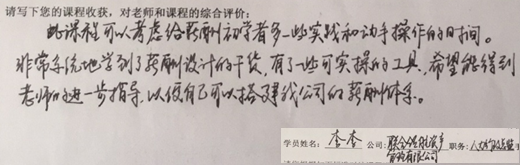 请写下您的课程收获，对老师和课程的综合评价：
此课程可以考虑给薪酬初学者多一些实践和动手操作的时间。
非常系统地学到了薪酬设计的干货，有了一些可实操的工具，希望能得到
老师的进一步指导，以便自己可以搭建我公司的薪酬体系。
学员姓名：杏杏 公司：联合 资产 职务：人力
管理有限公司